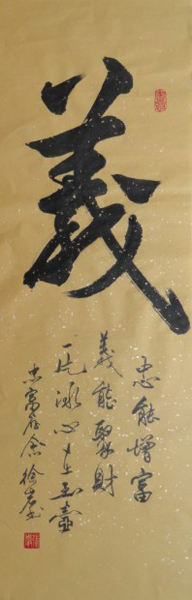 義
忠能增富
義能聚財
一片冰心在玉壺